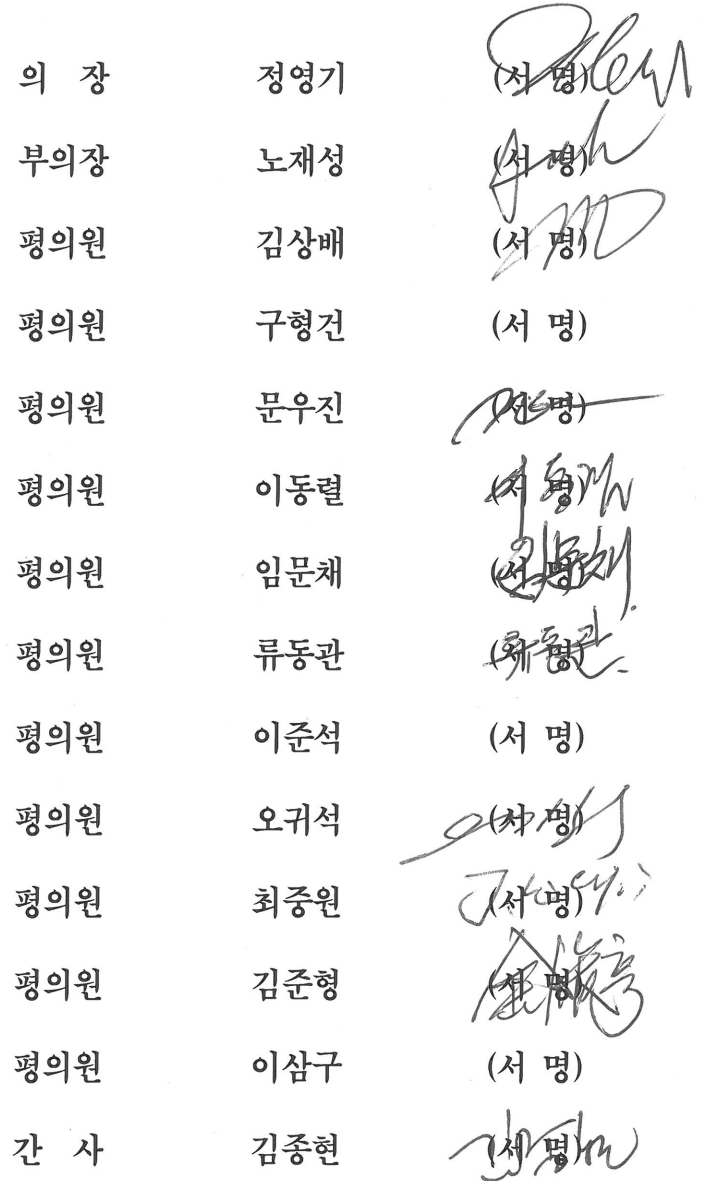 의 장 정영기 (서 명)
부의장 노재성 (서 명)
평의원 김상배 (서 명)
평의원 구형건 (서 명)
평의원 문우진 (서 명)
평의원 이동렬 (서 명)
평의원 임문채 (서 명)
평의원 류동관 (서 명)
평의원 이준석 (서 명)
평의원 오귀석 (서 명)
평의원 최중원 (서 명)
평의원 김준형 (서 명)
평의원 이삼구 (서 명)
간 사 김종현 (서 명)